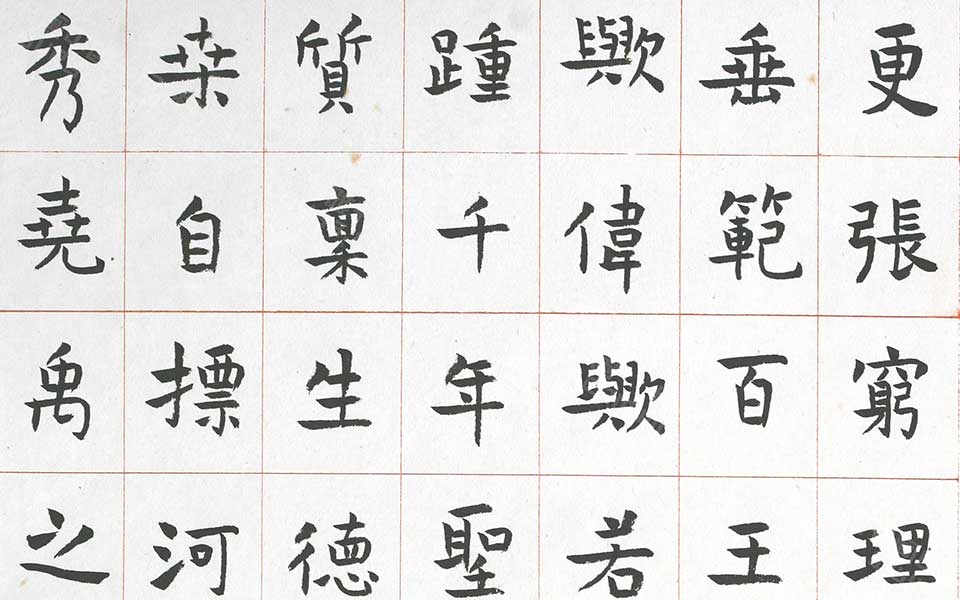 更張窮理
垂範百王
歟偉歟若
踵千年聖
質稟生徳
桒自摽河
秀堯禹之